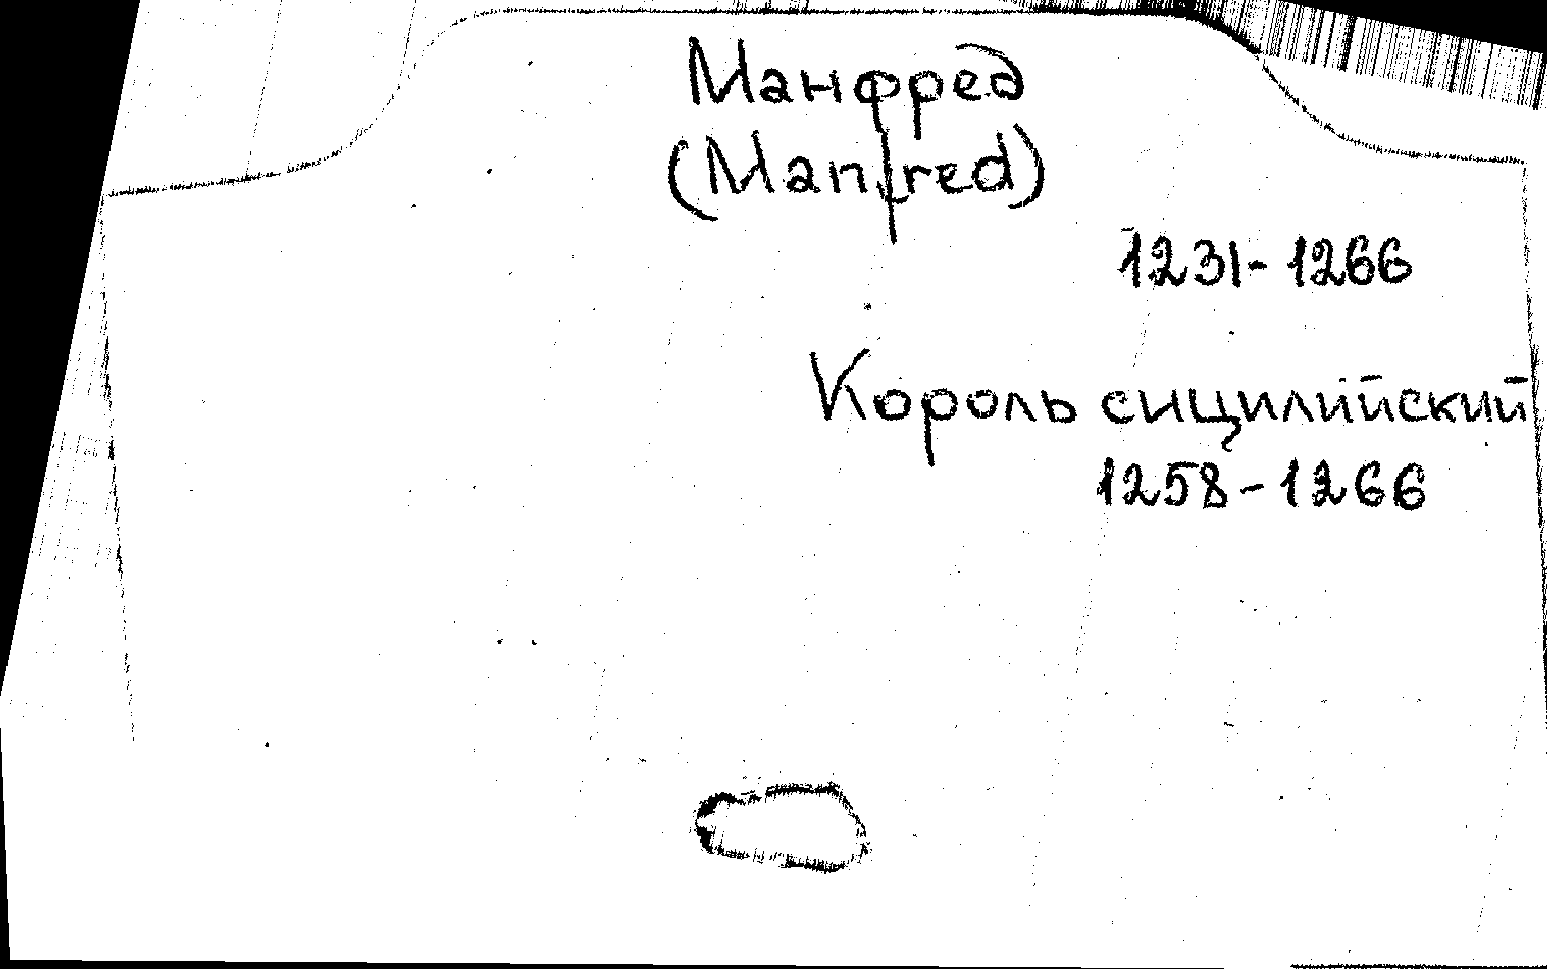 Манфред
(Manfred)
1231-1266
Король сицилийский
1258-1266